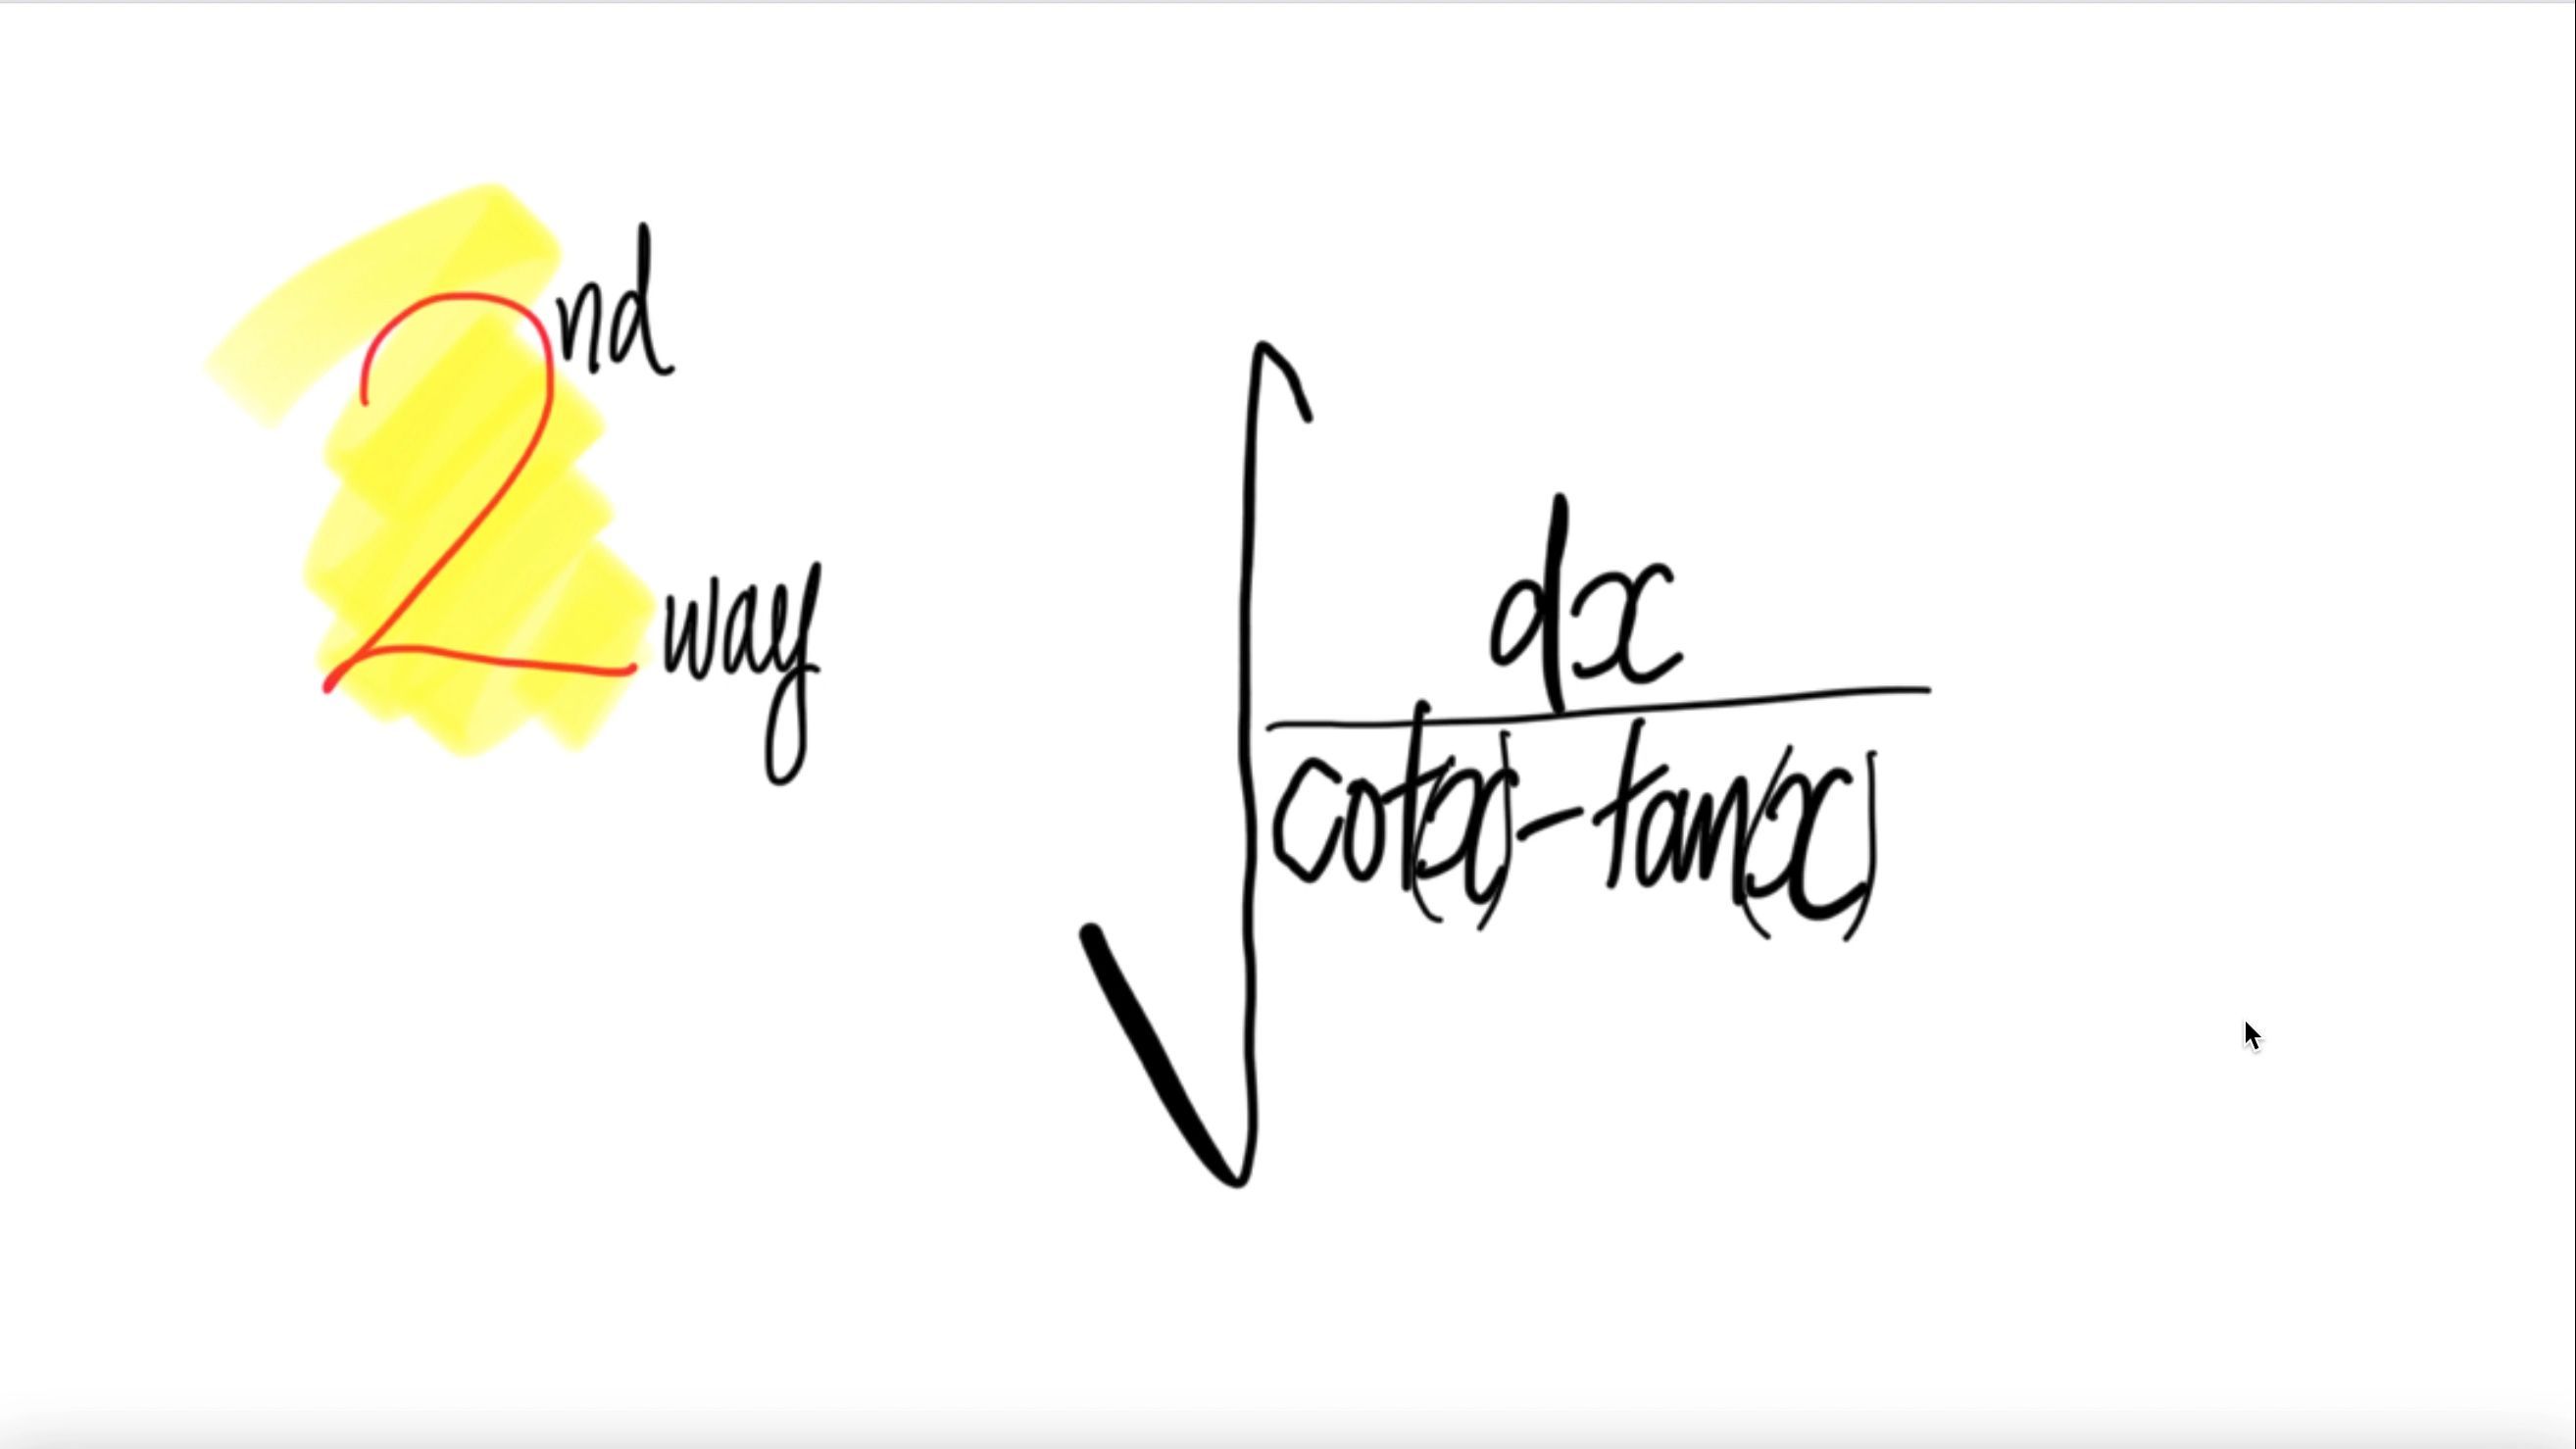 2nd
way
∫ dx
cot(x)-tan(x)